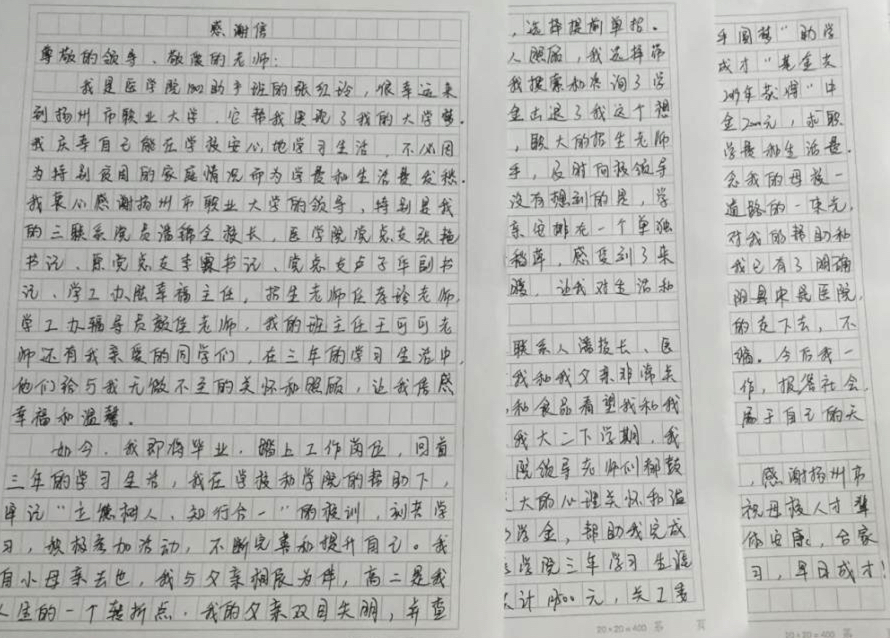 感谢信
尊敬的领导、敬爱的老师：
我是医学院 助产班的张红玲，很幸运来
到扬州市职业大学，它帮我实现了我的大学梦。
我庆幸自己能在学校安心地学习生活，不必因
为特别贫困的家庭情况而为学费和生活费发愁。
我衷心感谢扬州市职业大学的领导，特别是我
的三联系党员潘锦全校长，医学院党总支张艳
书记、原党总支李霖书记、党总支卢子华副书
记、学工办 幸福主任，招生老师任 玲老师，
学工办辅导员 老师，我的班主任王可可老
师还有我亲爱的同学们，在三年的学习生活中，
他们给与我无微不至的关怀和照顾，让我倍感
幸福和温馨。
如今，我即将毕业，踏上工作岗位，回首
三年的学习生活，我在学校和学院的帮助下，
牢记“立德树人、知行合一”的校训，刻苦学
习，积极参加活动，不断完善和提升自己。我
自小母亲去世，我与父亲相依为伴，高二是我
人生的一个转折点，我的父亲双目失明，并查
，选择提前单招。
人照顾，我选择 
我搜索和咨询了学
金击退了我这个想
，职大的招生老师
手，及时向校领导
没有想到的是，学
亲安排在一个单独
稳萍，感受到了来
暖，让我对生活和
联系人潘校长、医
我和我父亲非常关
和食品看望我和我
我大二下学期，我
院领导老师们都鼓
大的心理关怀和温
学金，帮助我完成
医学院三年学习生涯
计1800元，关工委
20×20=400 第 页
手圆梦”助学
成才“ 金支
2019年获得“中
金2000元，求职
学费和生活费。
念我的母校一
道路的一束光，
对我的帮助和
我已有了明确
阴县中医医院，
的走下去，不
骗。今后我一
作，报答社会，
属于自己的天
，感谢扬州市
祝母校人才辈
体安康，合家
习，早日成才！
20×20=400 第